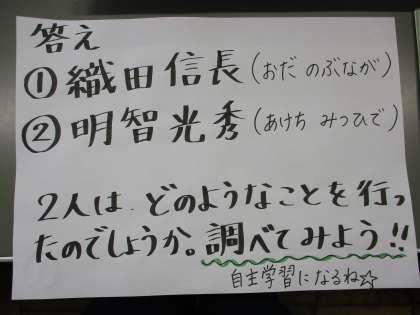 答え
①織田信長(おだ のぶなが)
②明智光秀(あけち みつひで)
2人は、どのようなことを行っ
たのでしょうか。調べてみよう!!
自主学習になるね☆